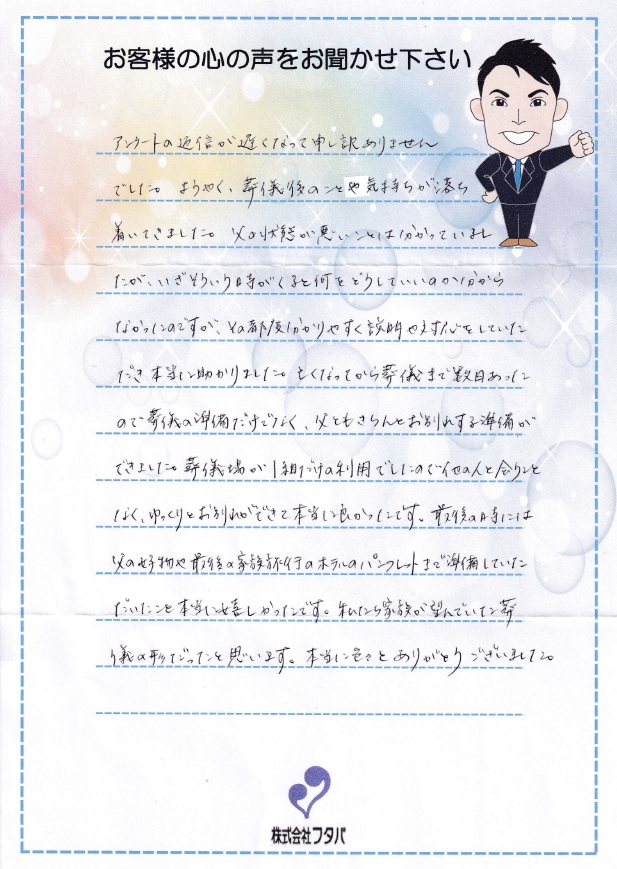 お客様の心の声をお聞かせ下さい
アンケートの返信が遅くなって申し訳ありません
でした。ようやく、葬儀後のことや気持ちが落ち
着いてきました。父の状態が悪いことは分かっていまし
たが、いざそういう時がくると何をどうしていいのか分から
なかったのですが、その都度分かりやすく説明や対応をしていた
だき本当に助かりました。亡くなってから葬儀まで数日あった
ので葬儀の準備だけでなく、父ともきちんとお別れする準備が
できました。葬儀場が1組だけの利用でしたので他の人と会うこと
なく、ゆっくりとお別れができて本当に良かったです。最後の時には
父の好物や最後の家族旅行のホテルのパンフレットまで準備していた
だいたこと本当に嬉しかったです。私たち家族が望んでいた葬
儀の形だったと思います。本当に色々とありがとうございました。
株式会社フタバ